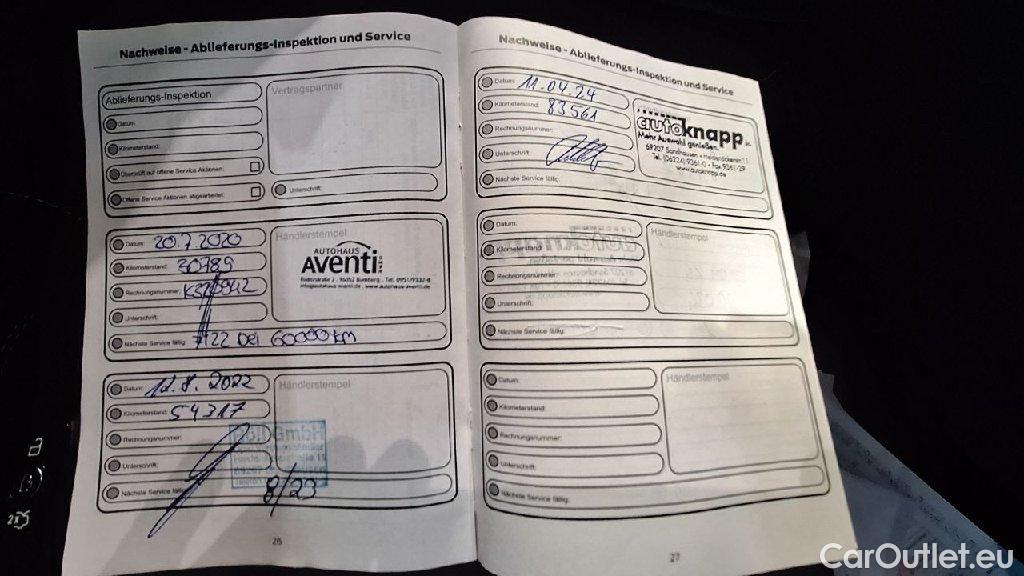 Nachweise - Ablieferungs-Inspektion und Service
Ablieferungs-Inspektion
Vertragspartner
Datum:
Kilometerstand:
Überprüft auf offene Service Aktionen:
Offene Service Aktionen abgearbeitet:
Unterschrift:
Datum: 20.7.2020
Händlerstempel
Kilometerstand: 30789
AUTOHAUS
AVENTI
Rechnungsnummer:
Unterschrift:
Nächste Service fällig: 7/22 bei 60000 km
Datum: 12.8.2022
Händlerstempel
Kilometerstand: 54317
Rechnungsnummer:
GmbH
Unterschrift:
Nächste Service fällig: 8/23
26
Nachweise - Ablieferungs-Inspektion und Service
Datum: 11.04.24
Kilometerstand: 83561
autoknapp
Mehr Auswahl genießen.
Rechnungsnummer:
Unterschrift:
www.autoknapp.de
Nächste Service fällig:
Datum:
Händlerstempel
Kilometerstand:
Rechnungsnummer:
Unterschrift:
Nächste Service fällig:
Datum:
Händlerstempel
Kilometerstand:
Rechnungsnummer:
Unterschrift:
Nächste Service fällig:
27
CarOutlet.eu